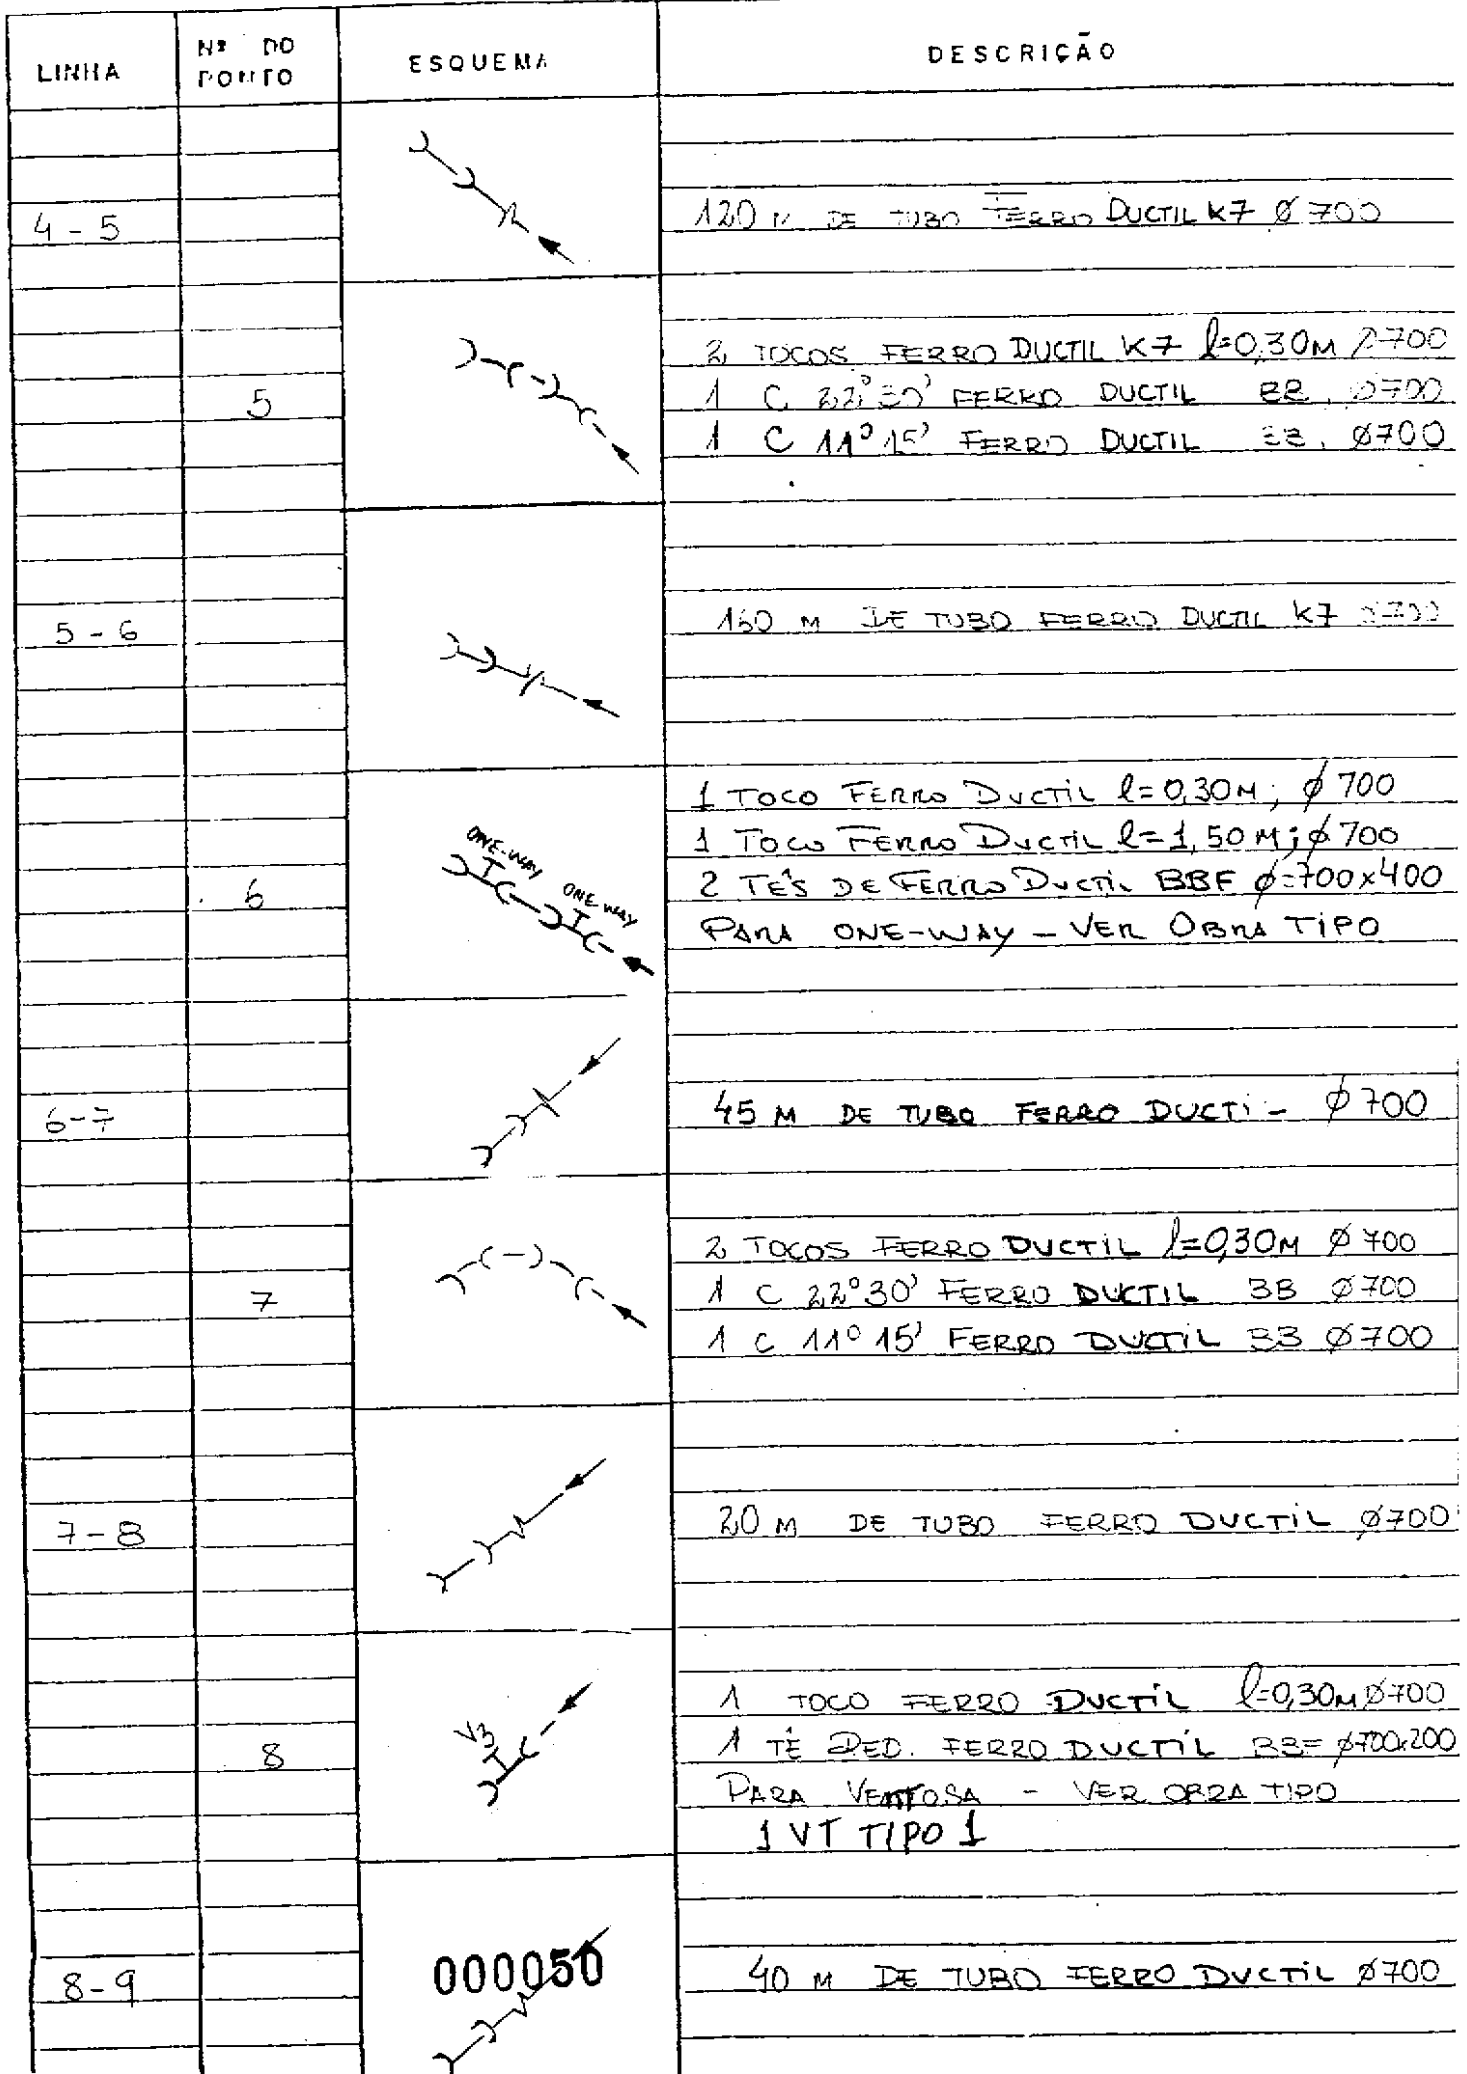 LINHA
Nº DO PONTO
ESQUEMA
DESCRIÇÃO
4-5
120 M DE TUBO FERRO DUCTIL K7 Ø 700
5
2 TOCOS FERRO DUCTIL K7 l=0,30M Ø700
1 C 22°30' FERRO DUCTIL BB. Ø700
1 C 11°15' FERRO DUCTIL BB. Ø700
5-6
M DE TUBO FERRO DUCTIL K7 Ø700
6
ONE-WAY
ONE-WAY
1 TOCO FERRO DUCTIL l=0,30M; Ø 700
1 TOCO FERRO DUCTIL l=1,50M; Ø700
2 TÊS DE FERRO DUCTIL BBF Ø=700x400
PARA ONE-WAY - VER OBRA TIPO
6-7
45 M DE TUBO FERRO DUCTi- Ø700
7
2 TOCOS FERRO DUCTIL l=0,30M Ø 700
1 C 22°30' FERRO DUCTIL BB Ø700
1 C 11°15' FERRO DUCTIL BB Ø700
7-8
20 M DE TUBO FERRO DUCTIL Ø700
8
V3
1 TOCO FERRO DUCTIL l=0,30M Ø700
1 TÊ RED. FERRO DUCTIL BBF Ø700x200
PARA VENTOSA - VER OBRA TIPO
1 VT TIPO 1
8-9
000050
40 M DE TUBO FERRO DUCTIL Ø700